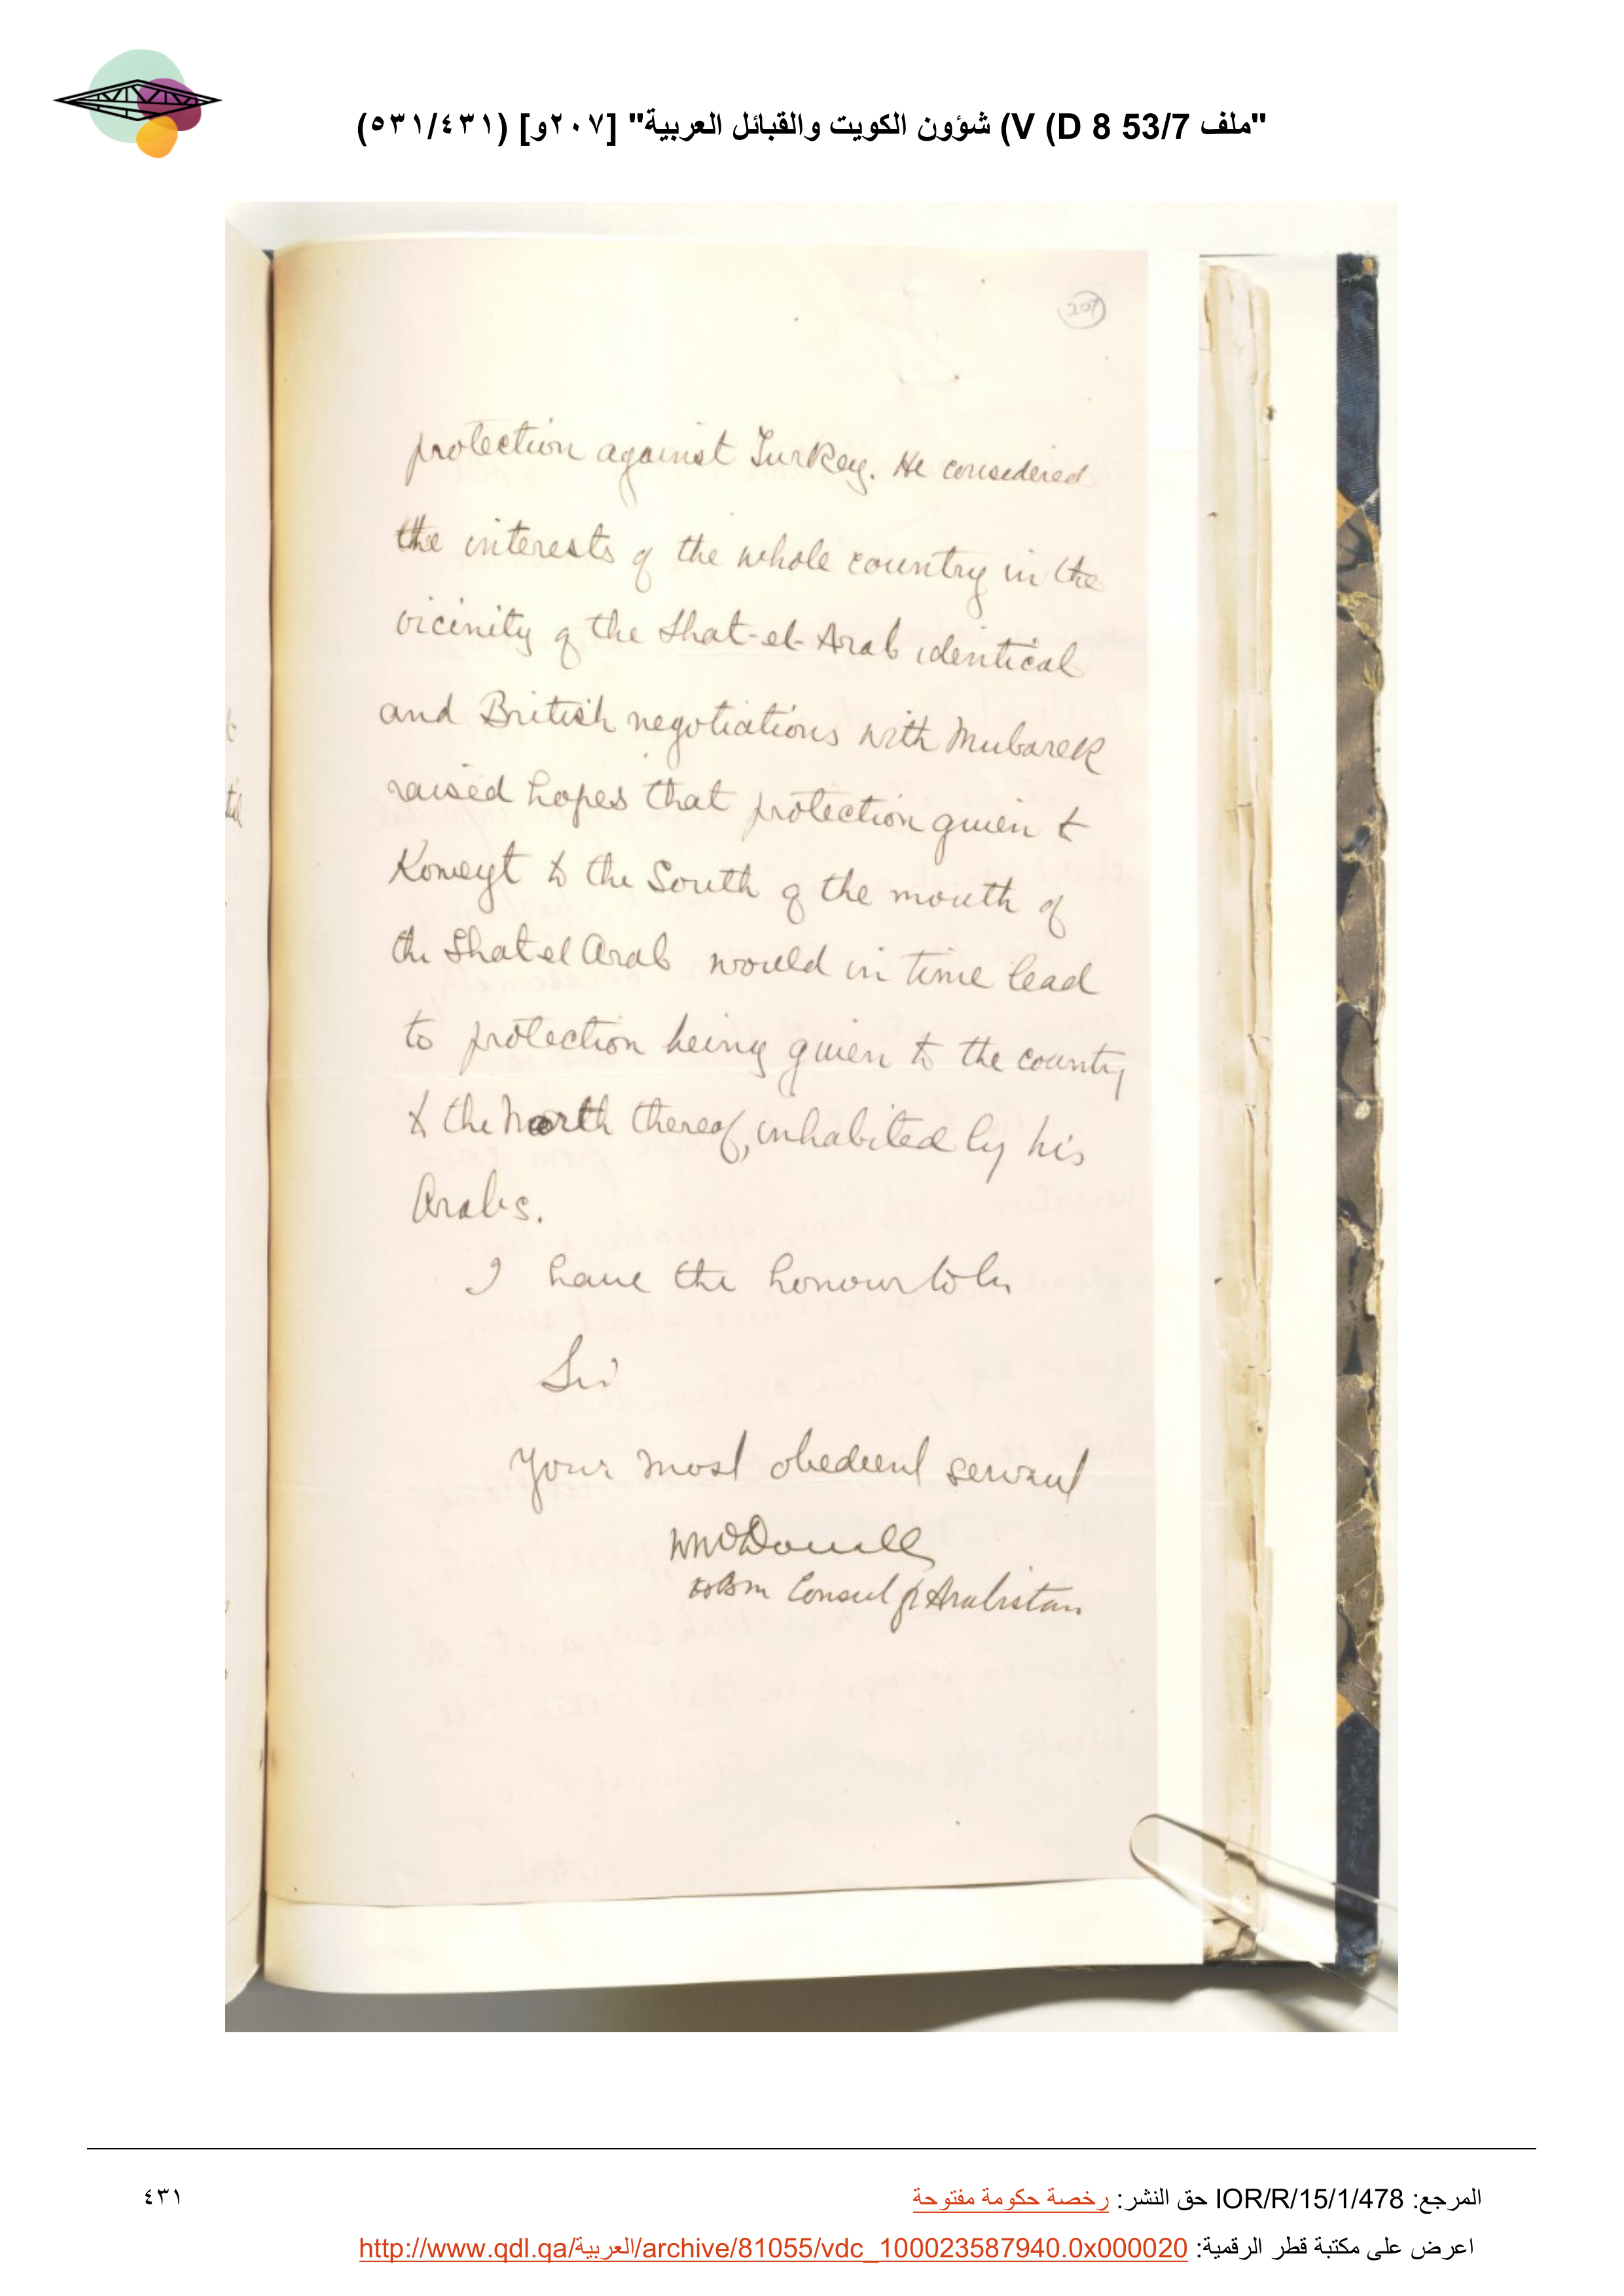 "ملف 53/7 V (D 8) شؤون الكويت والقبائل العربية" [٢٠٧و] (٥٣١/٤٣١)
207
protection against Turkey. He considered
the interests of the whole country in the
vicinity of the Shat-el-Arab identical
and British negotiations with Mubarek
raised hopes that protection given to
Koweyt to the South of the mouth of
the Shat el Arab would in time lead
to protection being given to the country
to the North thereof, inhabited by his
Arabs.
I have the honour to be
Sir
Your most obedient servant
W McDouall
HBM Consul for Arabistan
المرجع: IOR/R/15/1/478 حق النشر: رخصة حكومة مفتوحة
٤٣١
اعرض على مكتبة قطر الرقمية: http://www.qdl.qa/العربية/archive/81055/vdc_100023587940.0x000020